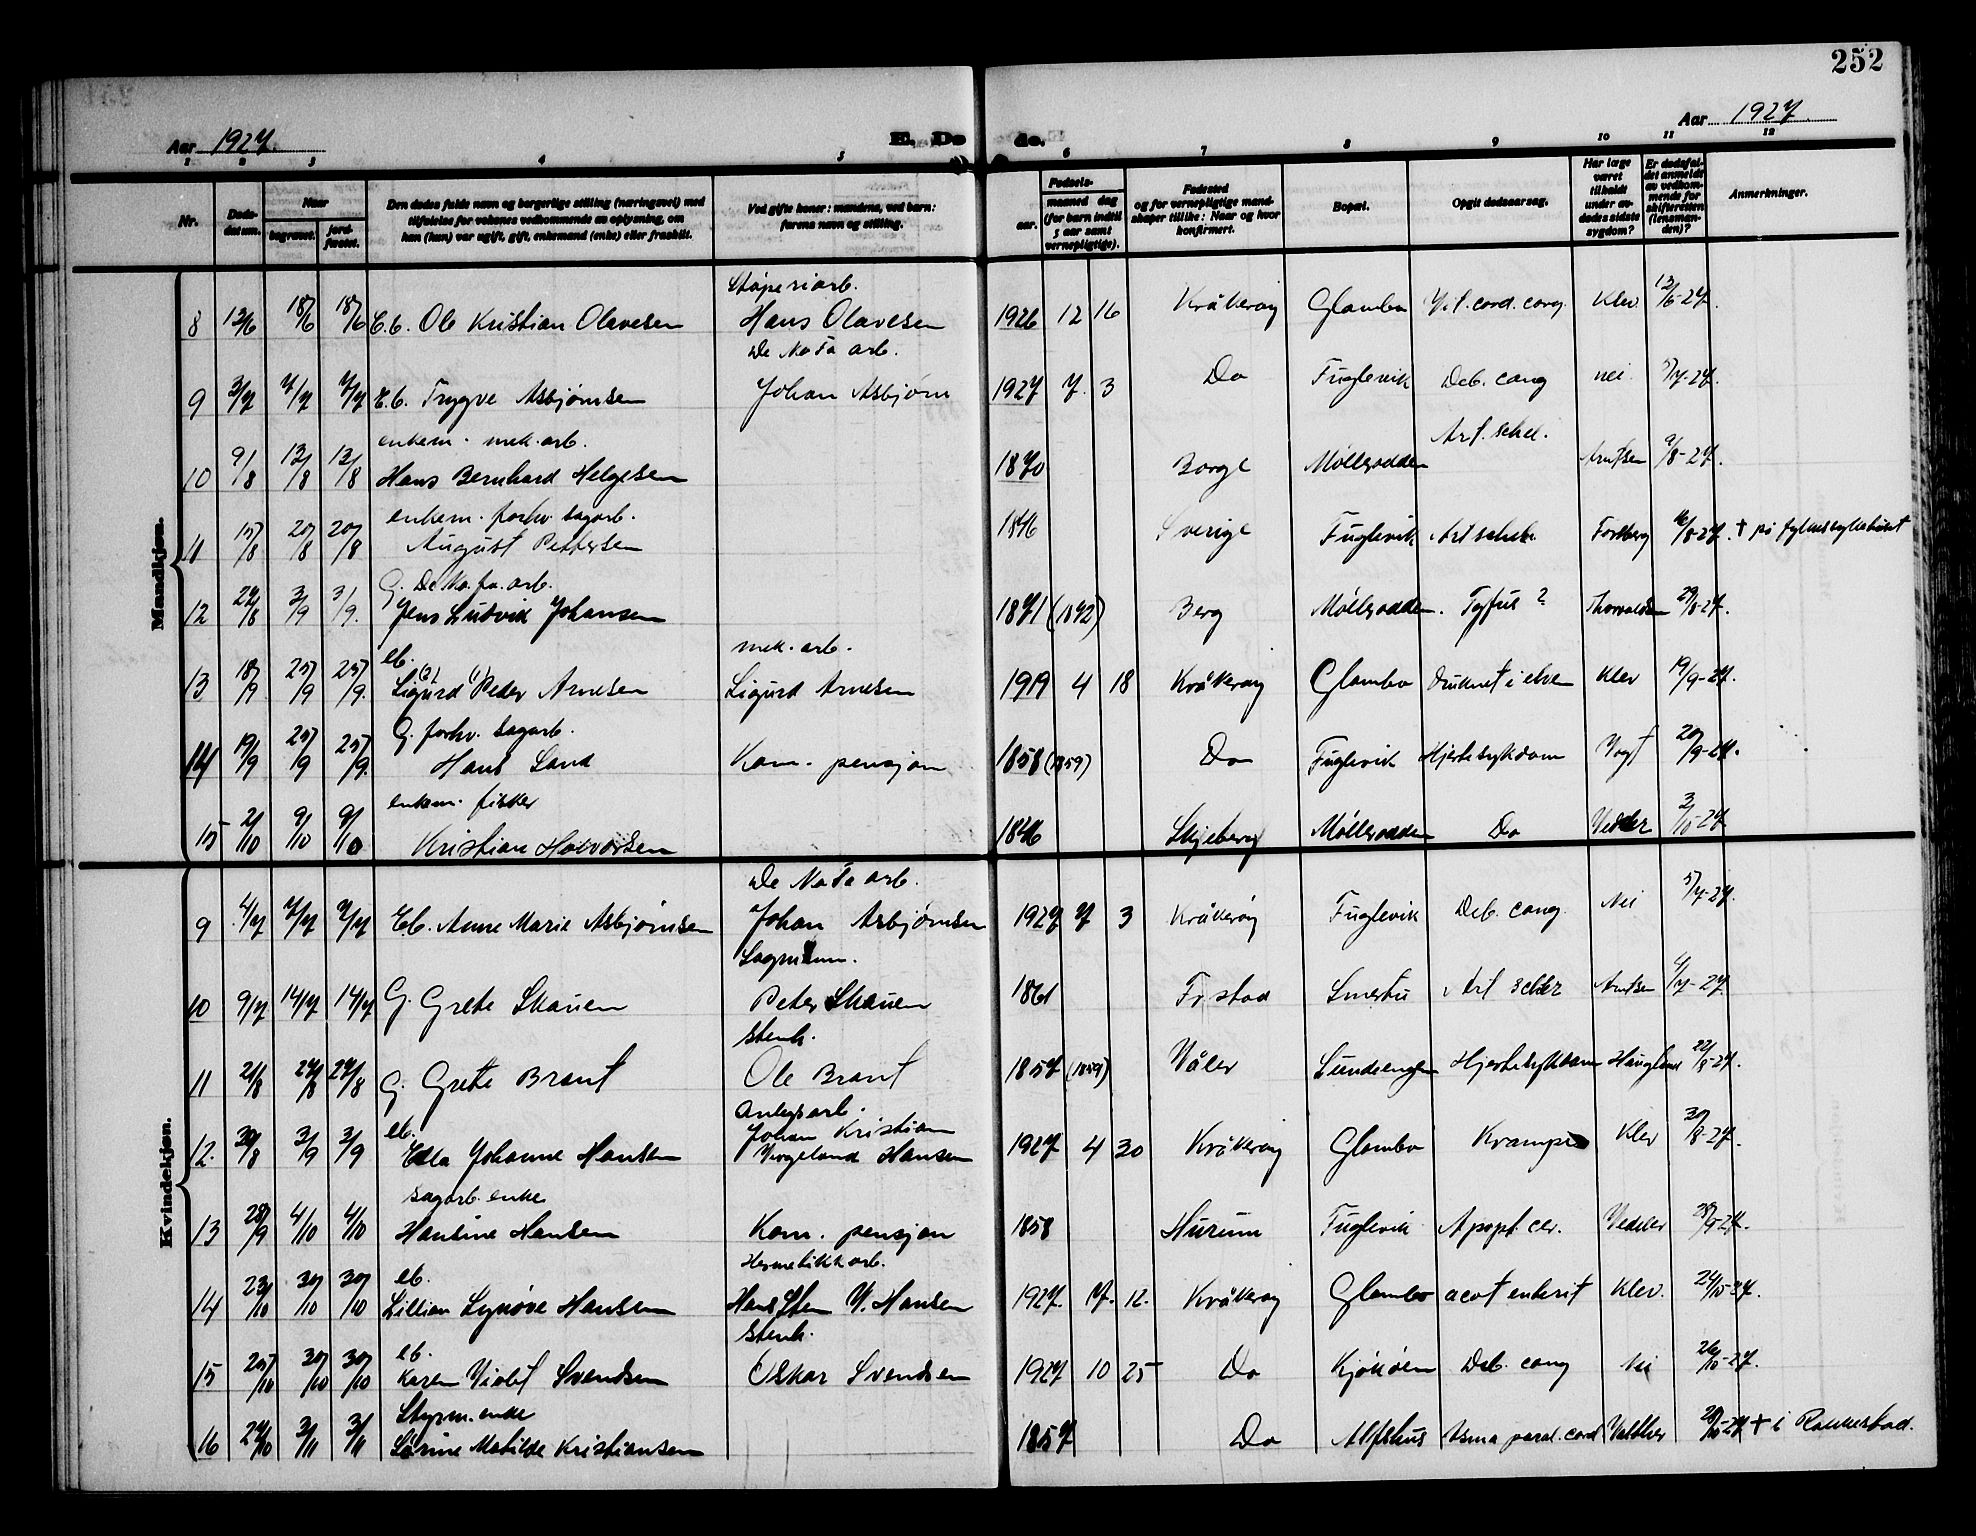 252
Aar 1927.
E. Dø
de.
Aar 1927
1 2 3 4 5 6 7 8 9 10 11 12
Nr.
Døds-datum.
Naar
begravet.
jord-fæstet.
Den dødes fulde navn og borgerlige stilling (næringsvei) med tilføielse for voksnes vedkommende av oplysning, om han (hun) var ugift, gift, enkemand (enke) eller fraskilt.
Ved gifte koner: mandens, ved barn: farens navn og stilling.
Fødsels-
aar.
maaned dag (for barn indtil 5 aar samt vernepligtige).
Fødested og for vernepligtige mandskaper tillike: Naar og hvor konfirmert.
Bopæl.
Opgit dødsaarsag.
Har læge været tilkaldt under avdødes sidste sygdom?
Er dødsfaldet anmeldt av vedkommende for skifteretten (lensmanden)?
Anmerkninger.
Mandkjøn.
Støperiarb.
8 12/6 18/6 18/6 E.b. Ole Kristian Olavesen Hans Olavesen 1926 12 16 Kråkerøy Glombo Vit. cord. cong. Klev 12/6-27.
De No Fa arb.
9 3/7 7/7 7/7 E.b. Trygve Asbjørnsen Johan Asbjørn 1927 7 3 Do Fuglevik Deb. cong nei 5/7-27.
enkem. mek. arb.
10 9/8 13/8 13/8 Hans Bernhard Helgesen 1870 Borge Møllerodden Art. scler. Arntsen 9/8-27.
enkem. forhv. sagarb.
11 15/8 20/8 20/8 August Pettersen 1846 Sverige Fuglevik Art scler Forberg 16/8-27. + på fylkessykehuset
G. De No. fa. arb.
12 27/8 3/9 3/9. Jens Ludvik Johansen 1871 (1872) Berg Møllerodden. Tyfus? Thorvaldsen 29/8-27.
eb. mek. arb.
13 18/9 25/9 25/9. Sigurd (2) Peder (1) Arnesen Sigurd Arnesen 1919 4 18 Kråkerøy Glombo Druknet i elven Klev 19/9-27.
G. forhv. sagarb.
14 19/9 25/9 25/9. Hans Sand Kom. pensjon 1858 (1859) Do Fuglevik Hjertesykdom Vogt 20/9-27.
enkem. fisker
15 2/10 9/10 9/10 Kristian Halvorsen 1846 Skjeberg Møllerodden Do Vedeler 3/10-27
Kvindekjøn.
De No Fa arb.
9 4/7 7/7 7/7 E.b. Anne Marie Asbjørnsen Johan Asbjørnsen 1927 7 3 Kråkerøy Fuglevik Deb. cong. Nei 5/7-27.
10 9/7 14/7 14/7 G. Grete Skauen Peter Skauen 1861 Fr.stad Smertu Art scler Arntsen 9/7-27
stenh.
11 21/8 27/8 27/8 G. Grete Brant Ole Brant 1857 (1859) Våler Sundengen Hjertesykdom Haugland 22/8-27.
eb. Anlegsarb.
12. 30/8 3/9 3/9 Ella Johanne Hansen Johan Kristian Vergeland Hansen 1927 4 30 Kråkerøy Glombo Krampe Klev 30/8-27.
sagarb. enke
13 28/9 4/10 4/10 Hansine Hansen Kom. pensjon 1858 Hurum Fuglevik Apopl. cer. Vedeler 28/9-27.
eb. Hermetikkarb.
14 23/10 30/10 30/10 Lillian Synøve Hansen Hans Sten V. Hansen 1927. 7. 12. Kråkerøy Glombo acut enterit Klev. 24/10-27.
eb. stenh.
15 25/10 30/10 30/10 Karen Violet Svendsen Oskar Svendsen 1927 10 25 Do Kjøkøen Deb. cong Nei 26/10-27.
Styrm. enke
16 27/10 3/11 3/11 Serine Matilde Kristiansen 1857 Do Alfshus Asma paral. cord Valdher 28/10-27 + i Rakkestad.